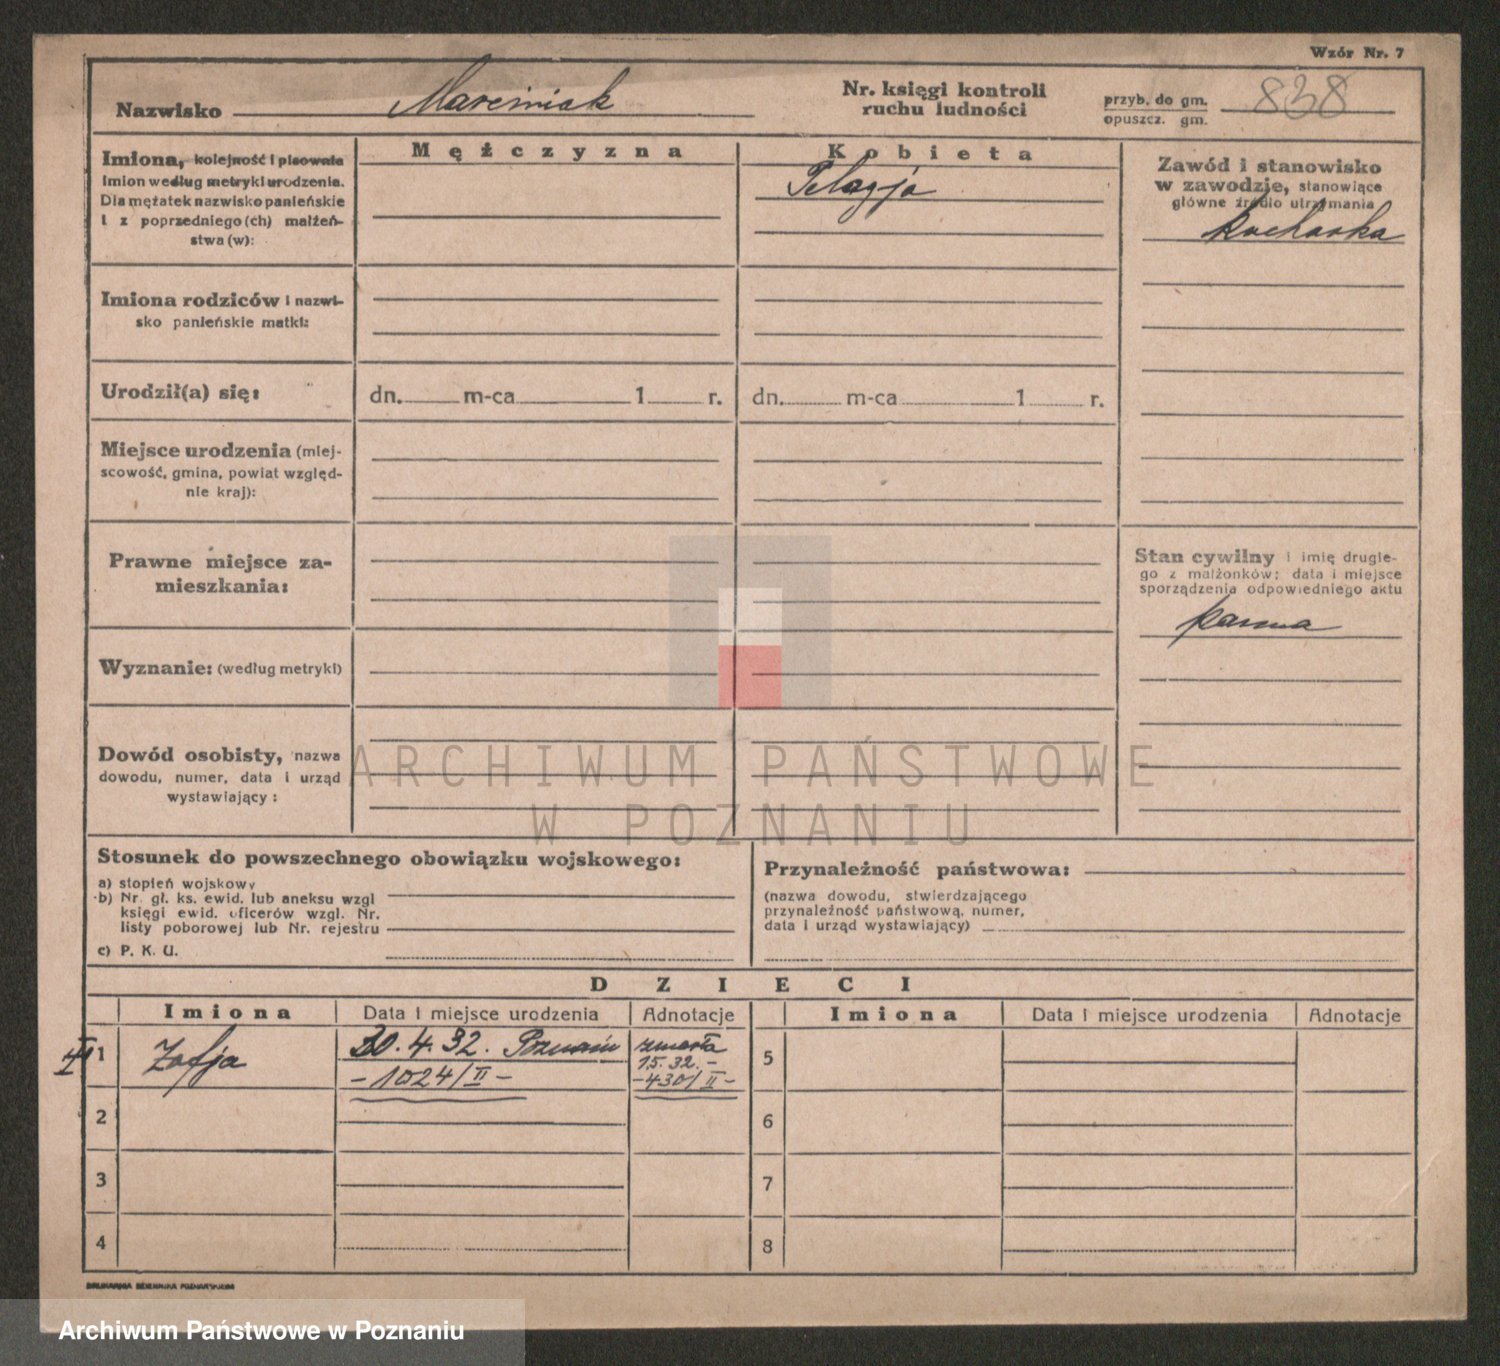 Wzór Nr. 7
Nazwisko Marciniak
Nr. księgi kontroli
ruchu ludności
przyb. do gm.
opuszcz. gm.
838
Imiona, kolejność i pisownia
imion według metryki urodzenia.
Dla mężatek nazwisko panieńskie
i z poprzedniego (ch) małżeń-
stwa (w):
Mężczyzna
Kobieta
Pelagja
Zawód i stanowisko
w zawodzie, stanowiące
główne źródło utrzymania
kucharka
Imiona rodziców i nazwi-
sko panieńskie matki:
Urodził(a) się:
dn. m-ca 1 r.
dn. m-ca 1 r.
Miejsce urodzenia (miej-
scowość, gmina, powiat względ-
nie kraj):
Prawne miejsce za-
mieszkania:
Stan cywilny i imię drugie-
go z małżonków; data i miejsce
sporządzenia odpowiedniego aktu
panna
Wyznanie: (według metryki)
Dowód osobisty, nazwa
dowodu, numer, data i urząd
wystawiający:
ARCHIWUM PAŃSTWOWE
W POZNANIU
Stosunek do powszechnego obowiązku wojskowego:
a) stopień wojskowy
b) Nr. gł. ks. ewid. lub aneksu wzgl
księgi ewid. oficerów wzgl. Nr.
listy poborowej lub Nr. rejestru
c) P. K. U.
Przynależność państwowa:
(nazwa dowodu, stwierdzającego
przynależność państwową, numer,
data i urząd wystawiający)
DZIECI
Imiona
Data i miejsce urodzenia
Adnotacje
Imiona
Data i miejsce urodzenia
Adnotacje
1 Zofja
30.4.32. Poznań
- 1024/II -
zmarła
15.32.-
-430/II-
2
3
4
5
6
7
8
DRUKARNIA DZIENNIKA POZNAŃSKIEGO
Archiwum Państwowe w Poznaniu